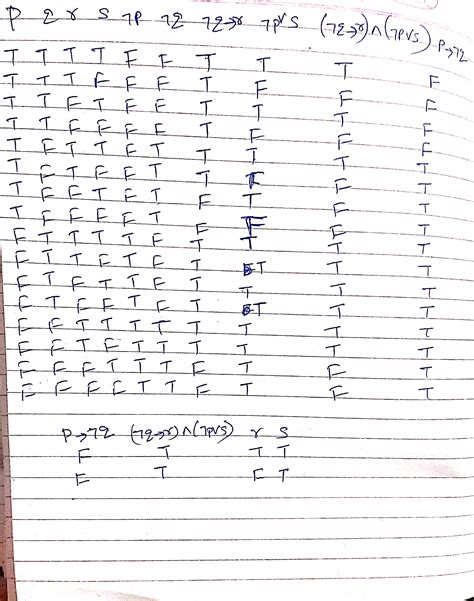 P q r s ¬P ¬q ¬q→r ¬P∨s (¬q→r)∧(¬P∨s) P→¬q
T T T T F F T T T F
T T T F F F T F F F
T T F T F F T T T F
T T F F F F T F F F
T F T T F T T T T T
T F T F F T T F F T
T F F T F T F T F T
T F F F F T F F F T
F T T T T F T T T T
F T T F T F T T T T
F T F T T F T T T T
F T F F T F T T T T
F F T T T T T T T T
F F T F T T T T T T
F F F T T T F T F T
F F F F T T F T F T
P→¬q (¬q→r)∧(¬P∨s) r s
F T T T
F T F T